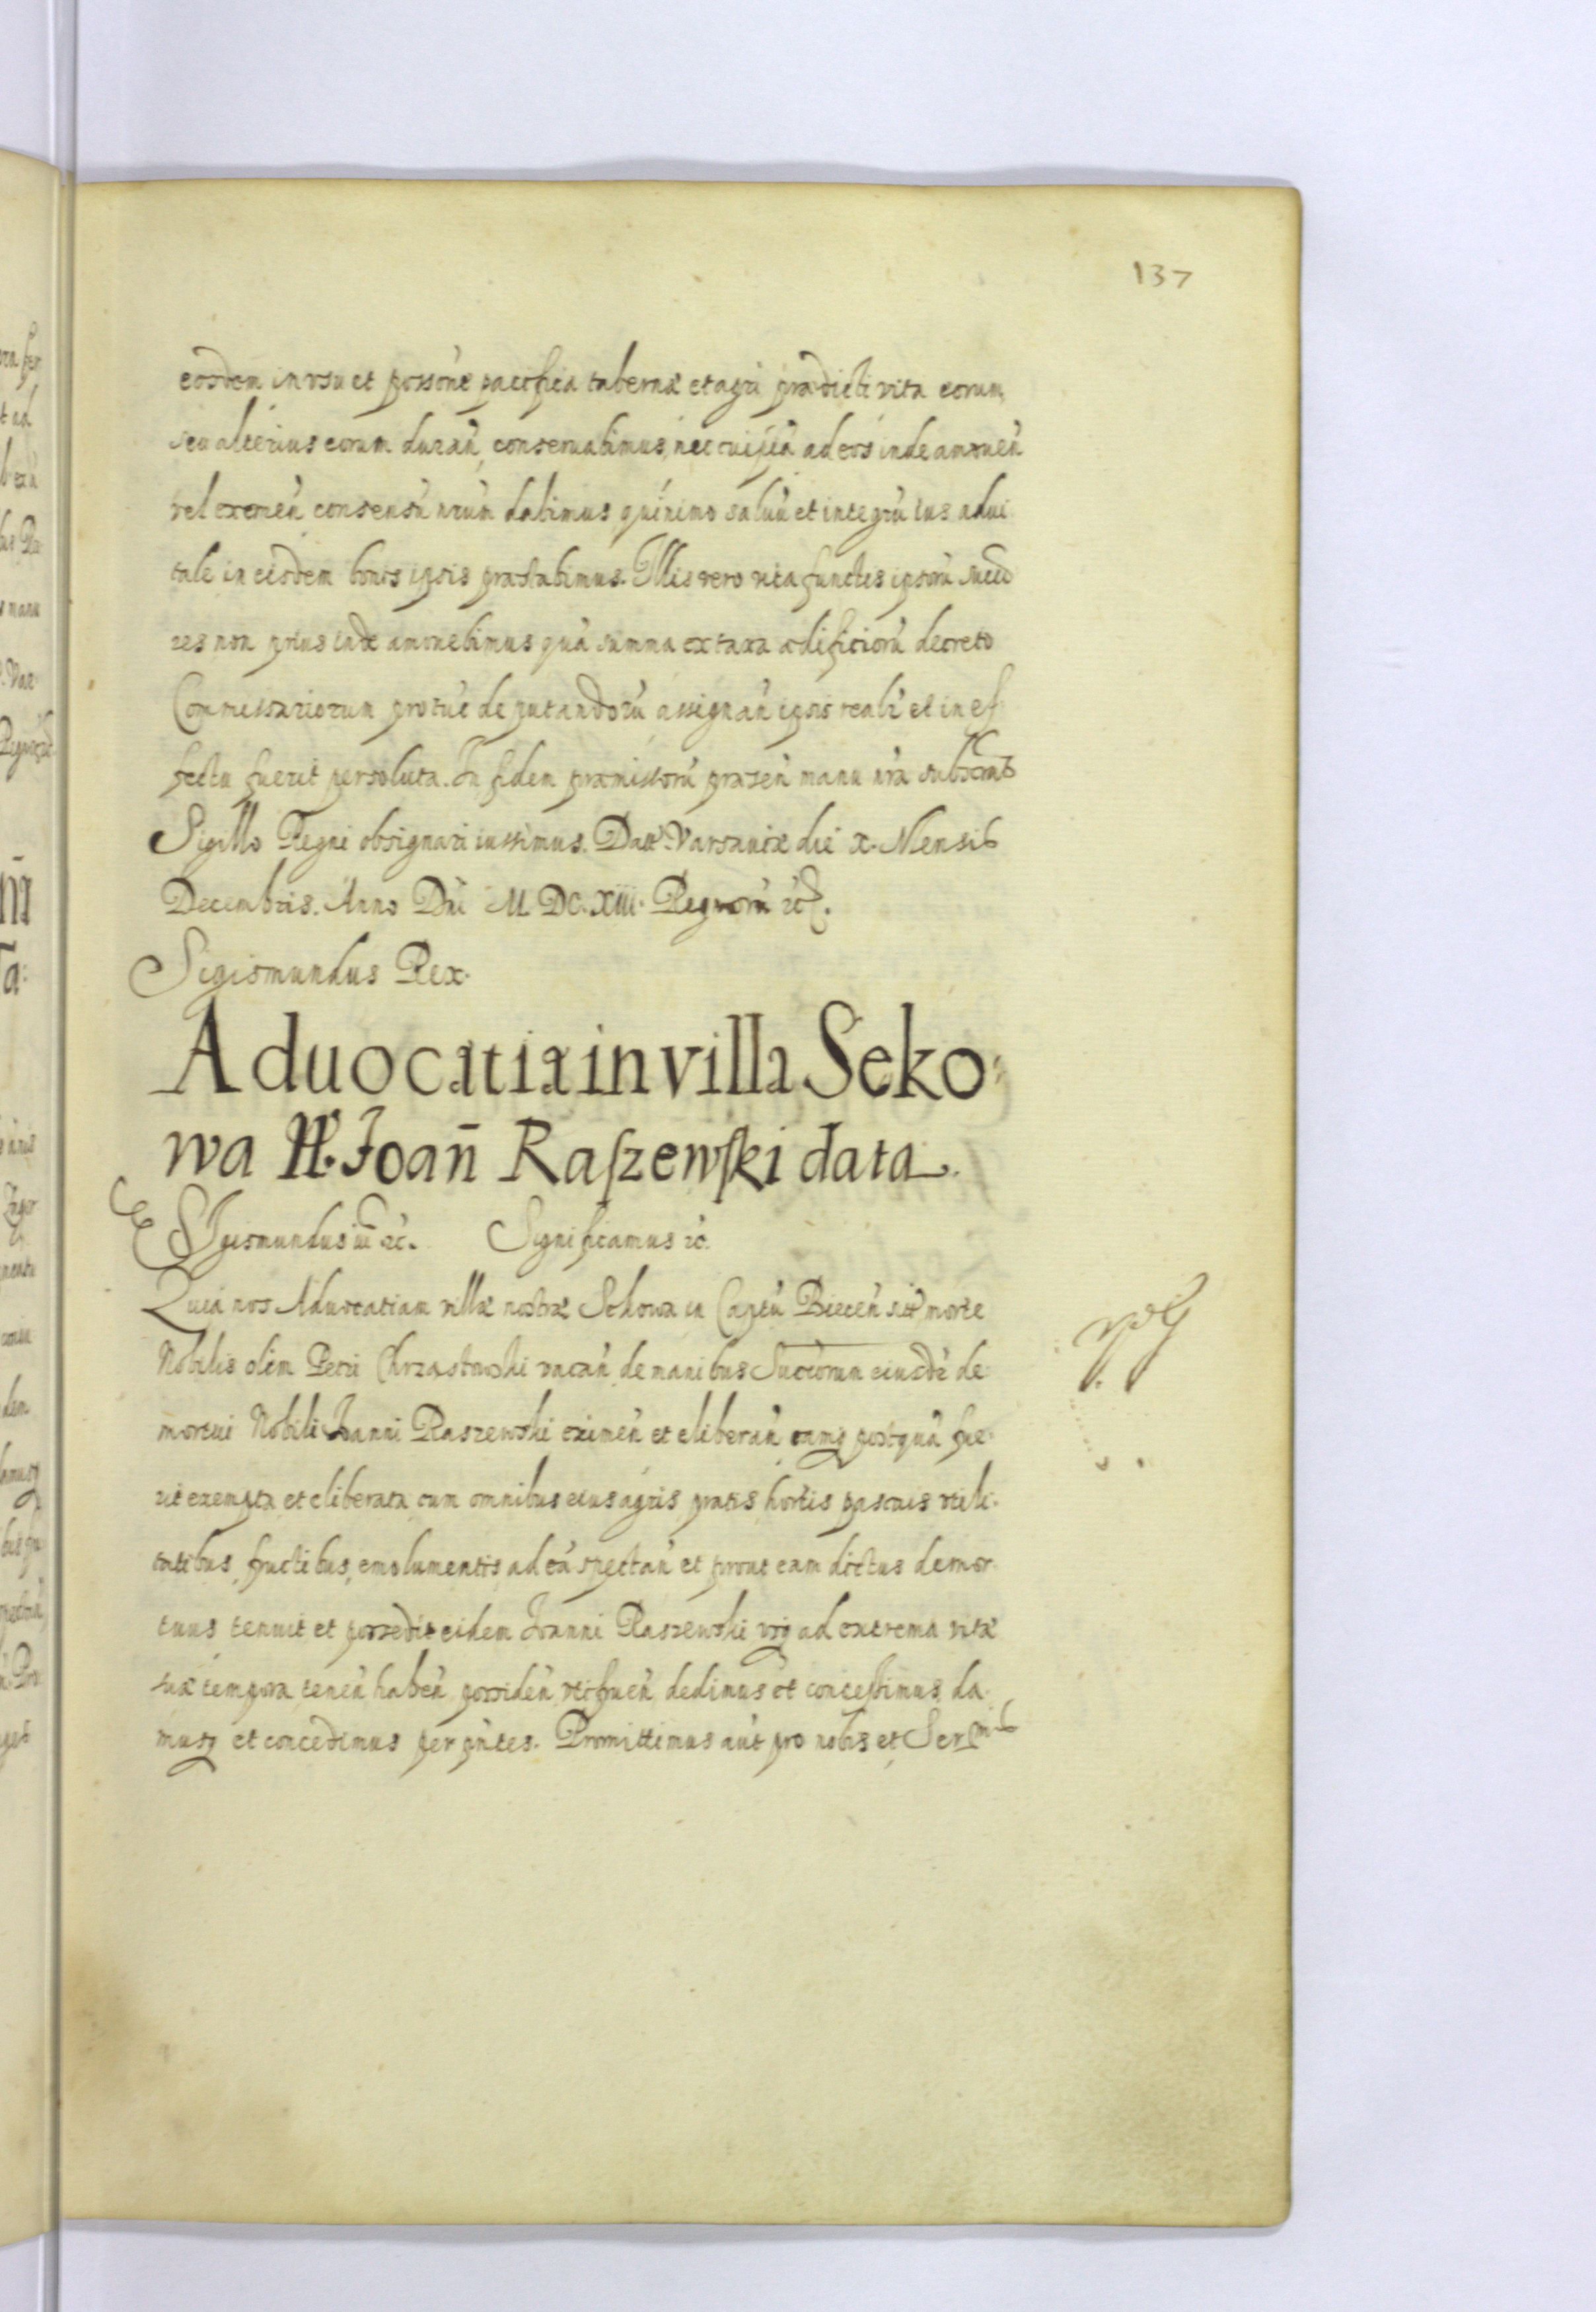 137
eosdem in vsu et possõne pacifica tabernæ et agri prædicti vita eorum,
seu alterius eorum durań, conseruabimus, nec cuiq́ ad eos inde amoueń
vel exemeń consensũ nr̃um dabimus quinimo saluũ et integrũ ius adui
tale in eisdem bonis ipsis præstabimus. Illis vero vita functis ipsorũ succ
res non prius inde amouebimus quã summa ex taxa ædificiorũ decreto
Commissariorum protũc deputandorũ assignań ipsis realr̃ et in ef
fectu fuerit persoluta. In fidem præmissorũ præseń manu nr̃a subscrib
Sigillo Regni obsignari iussimus. Datt Varsauiæ die x. Mensis
Decembris. Anno Dñi M. DC. XIII. Regnorũ &c.
Sigismundus Rex.
Aduocatia in villa Seko:
wa N. Joañ Raszewski data.
SIgismundus iii &c. Significamus &c.
Quia nos Aduocatiam villæ nostræ Sekowa in Captũ Bieceń sit morte
Nobilis olim Petri Chrząstowski vacań de manibus Succorum eiusdẽ de:
mortui Nobili Joanni Raszewski eximeń et eliberań eamq́ postquã fue:
rit exempta et eliberata cum omnibus eius agris pratis hortis pascuis vtili:
tatibus, fructibus, emolumentis ad eã spectań et prout eam dictus demor
tuus tenuit et possedit eidem Joanni Raszewski vsq́ ad extrema vitæ
suæ tempora teneń habeń possideń vtifrueń dedimus et concessimus da
musq́ et concedimus per pñtes. Promittimus aũt pro nobis et Sermis